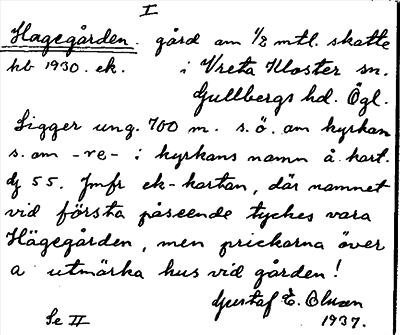 I
Hagegården. gård om 1/2 mtl. skatte
hb 1930. ek. i Vreta Kloster sn.
Gullbergs hd. Ögl.
Ligger ung. 700 m. s.ö. om kyrkan
s. om -re- i kyrkans namn å kart.
dj 55. Jmfr ek-kartan, där namnet
vid första påseende tyckes vara
Hägegården, men prickarna över
a utmärka hus vid gården!
Gustaf E. Olsson
Se II 1937.